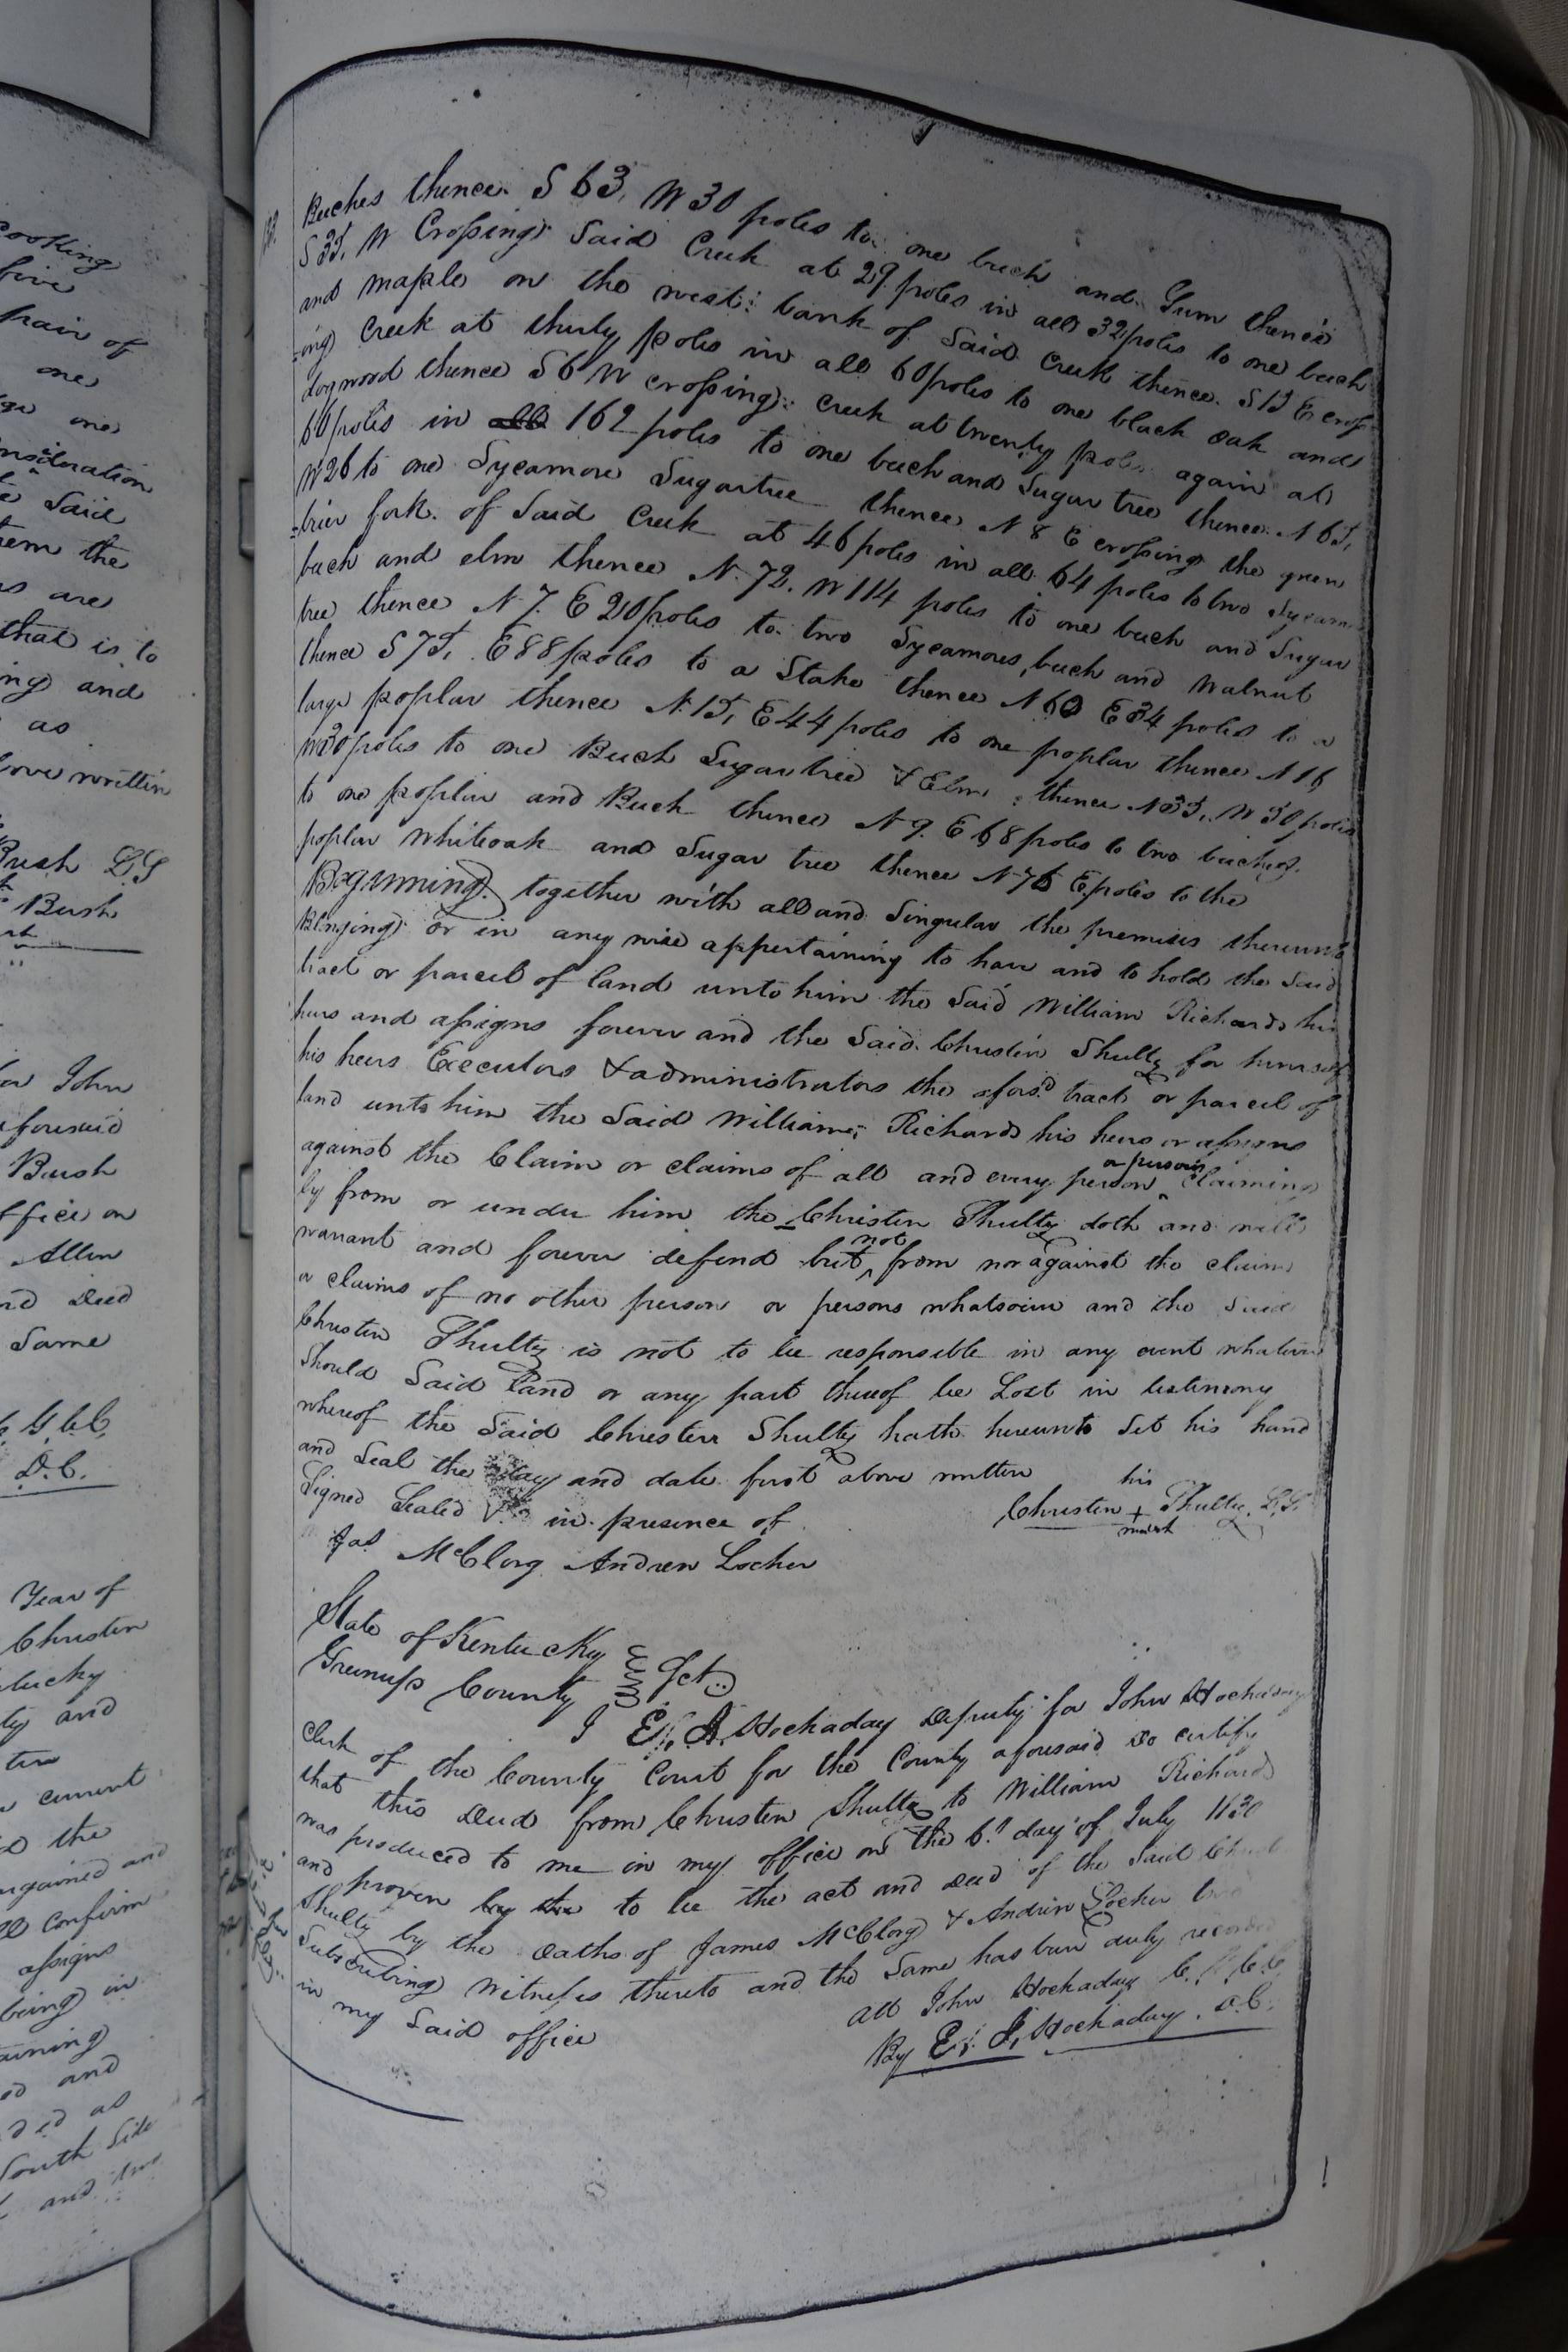 Beeches thence S 63, W 30 poles to one beech and Gum thence
S 35, W Crossing Said Creek at 29 poles in all 32 poles to one beech
and maple on the west bank of Said Creek thence S 15 E cross
-ing Creek at thirty poles in all 60 poles to one black oak and
dogwood thence S 6 W crossing creek at twenty poles again at
60 poles in 162 poles to one beech and Sugar tree thence N 65,
W 26 to one Sycamore Sugartree thence N 8 E crossing the green
-brier fork of Said Creek at 46 poles in all 64 poles to two Sycam
beech and elm thence N. 72. W 114 poles to one beech and Sugar
tree thence N 7. E 20 poles to two Sycamores, beech and walnut
thence S 75, E 88 poles to a Stake thence N 60 E 34 poles to a
large poplar thence N. 15, E 44 poles to one poplar thence N 16
W 30 poles to one Beech Sugartree & Elm thence N 35, W 30 poles
to one poplar and Beech thence N 9. E 68 poles to two beeches
poplar Whiteoak and Sugar tree thence N 76 E poles to the
Beginning together with all and Singular the premises thereunto
or in any wise appertaining to have and to hold the Said
tract or parcel of land unto him the Said William Richards his
heirs and assigns forever and the Said Christen Shultz for himself
his heirs Executors & administrators the afors.d tract or parcel of
land unto him the Said William Richards his heirs or assigns
against the Claim or claims of all and every person or persons claiming
by from or under him the Christen Shultz doth and will
warrant and forever defend but not from nor against the claim
or claims of no other person or persons whatsoever and the Said
Christen Shultz is not to be responsible in any event whatever
Should Said land or any part thereof be Lost in testimony
whereof the Said Christen Shultz hath hereunto Set his hand
and Seal the day and date first above written
his
Signed Sealed & in presence of Christen + Shultz L.S.
mark
Jas McClorg Andrew Locher
State of Kentucky
Greenup County Sct
I E. J. Hockaday Deputy for John Hockaday
Clerk of the County Court for the County aforesaid do certify
that this Deed from Christen Shultz to William Richards
was produced to me in my office on the 6.th day of July 1830
and proven by to be the act and deed of the Said
Shultz by the oaths of James McClorg & Andrew Locher two
Subscribing witnesses thereto and the Same has been duly recorded
in my Said office
Att John Hockaday C.
By E. J. Hockaday. D.C.
Cooking
five
hair of
one
one
nsideration
Said
em the
are
that is to
ing and
as
above written
Bush L.S
Bush
John
aforesaid
Bush
office on
Allen
Deed
Same
G.C.C.
D.C.
Year of
Christen
tucky
ty and
current
the
rgained and
confirm
assigns
being in
and
as
South Side
and two